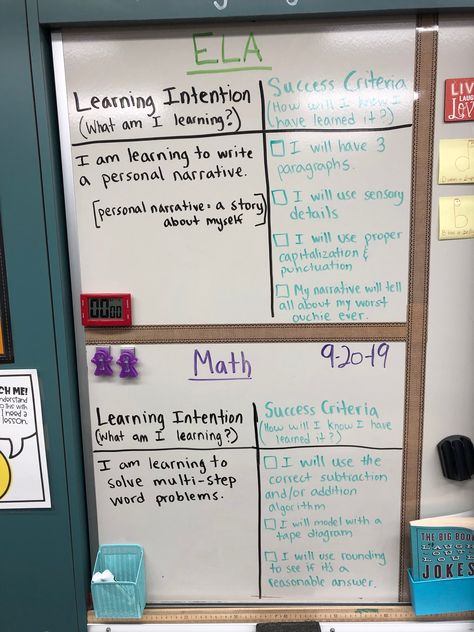 ELA
Learning Intention
(What am I learning?)
I am learning to write
a personal narrative.
[personal narrative = a story
about myself
Success Criteria
(How will I know I
have learned it?)
I will have 3
paragraphs.
I will use sensory
details
I will use proper
capitalization &
punctuation
My narrative will tell
all about my worst
ouchie ever.
00:00
Math
9-20-19
Learning Intention
(What am I learning?)
I am learning to
solve multi-step
word problems.
Success Criteria
(How will I know I have
learned it?)
I will use the
correct subtraction
and/or addition
algorithm
I will model with a
tape diagram
I will use rounding
to see if it's a
reasonable answer.
LIVE
LAUGH
LOVE
CH ME!
understand
to this with
need a
lesson.
THE BIG BOOK
LAUGH
OUT
LOUD
JOKES